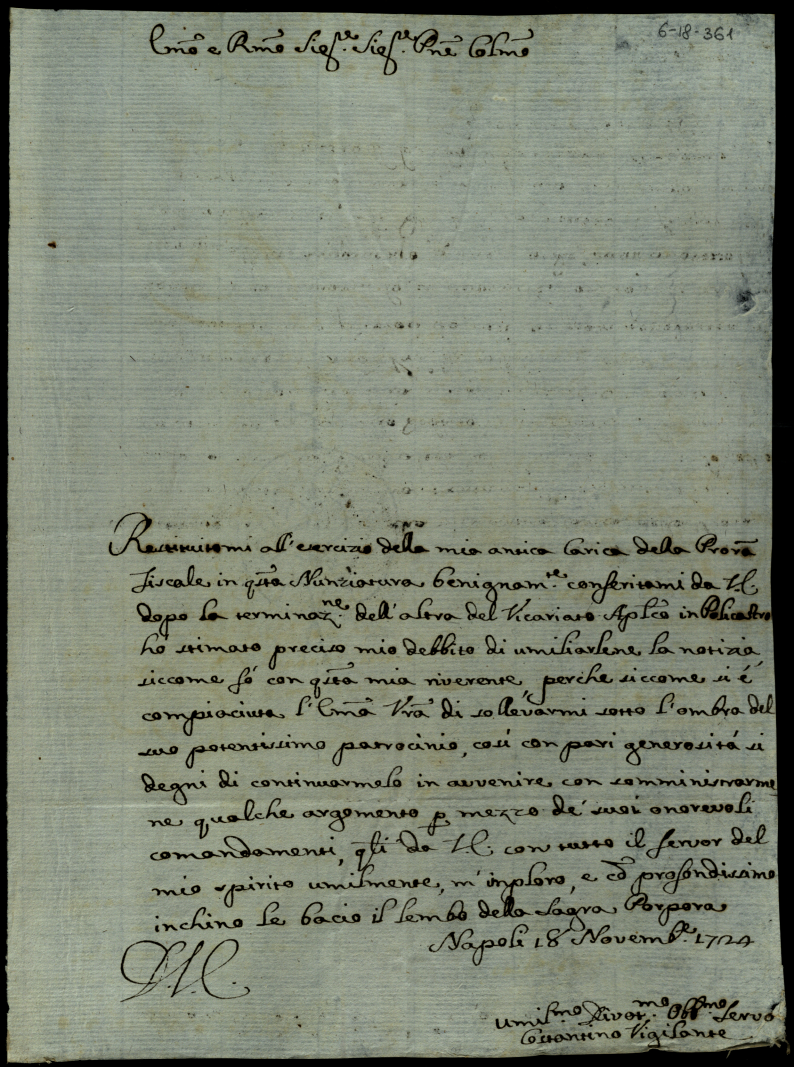 6-18-361
Em̃o e Rm̃o Sig.re Sig.re Pñe Colm̃o
Restituitomi all'esercizio della mia antica Carica della Prorã
Fiscale in q̃sta Nunziatura benignam.te conferitami da V.E.
dopo la terminaz.ne dell'altra del Vicariato Aplĩco in Policastro
ho stimato preciso mio debbito di umiliarlene la notizia
siccome fó con q̃sta mia riverente, perche siccome si é
compiaciuta l'Em̃a Vrã di sollevarmi sotto l'ombra del
suo potentissimo patrocinio, cosí con pari generositá si
degni di continuarmelo in avvenire con somministrarme
ne qualche argomento p̱ mezzo de' suoi onorevoli
comandamenti, q̃li da V.E. con tutto il fervor del
mio spirito umilmente, m'inploro, e cõ profondissimo
inchino le bacio il lembo della Sagra Porpora
Napoli 18 Novemb.e 1724
D.V.E.
umil.mo Divot.mo Obb.mo Servo
Costantino Vigilante